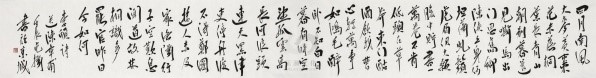 四月南风
大麥黄棗
花未落桐
葉長青山
朝别暮還
見嘶馬出
門思舊鄉
陳侯立身
何坦蕩虬
鬚虎眉仍
大顙腹中
貯書一萬
卷不肯
低頭在草
莽東門酤
酒飲我曹
心輕萬事
如鴻毛醉
卧不知白日
暮有時空望
孤雲高
長河浪頭
連天黑津
口停舟渡
不得鄭國
遊人未及
家洛陽行
子空歎息
聞道故林
相識多
罷官昨日
今如何
李頎詩
送陳章甫
書於京城